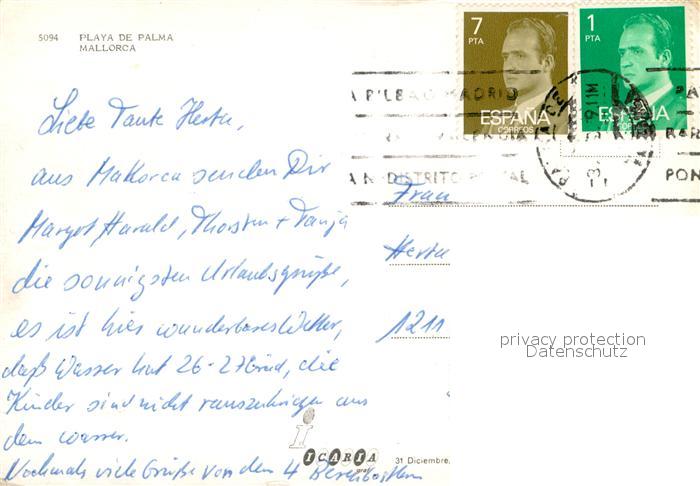 5094 PLAYA DE PALMA
MALLORCA
7 PTA
ESPAÑA
CORREOS
1 PTA
ESPAÑA
A BILBAO MADRID
DISTRITO POSTAL
PON
Liebe Tante Herta,
aus Mallorca senden Dir
Margot Harald, Thorsten + Tanja
die sonnigsten Urlaubsgrüße,
es ist hier wunderbares Wetter,
das Wasser hat 26-27 Grad, die
Kinder sind nicht rauszukriegen aus
dem Wasser.
Nochmals viele Grüße von den 4
Frau
Herta
1211
privacy protection
Datenschutz
ICARIA
31 Diciembre,